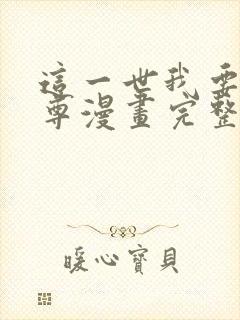 這一世我要
尊漫畫完整
暖心寶貝